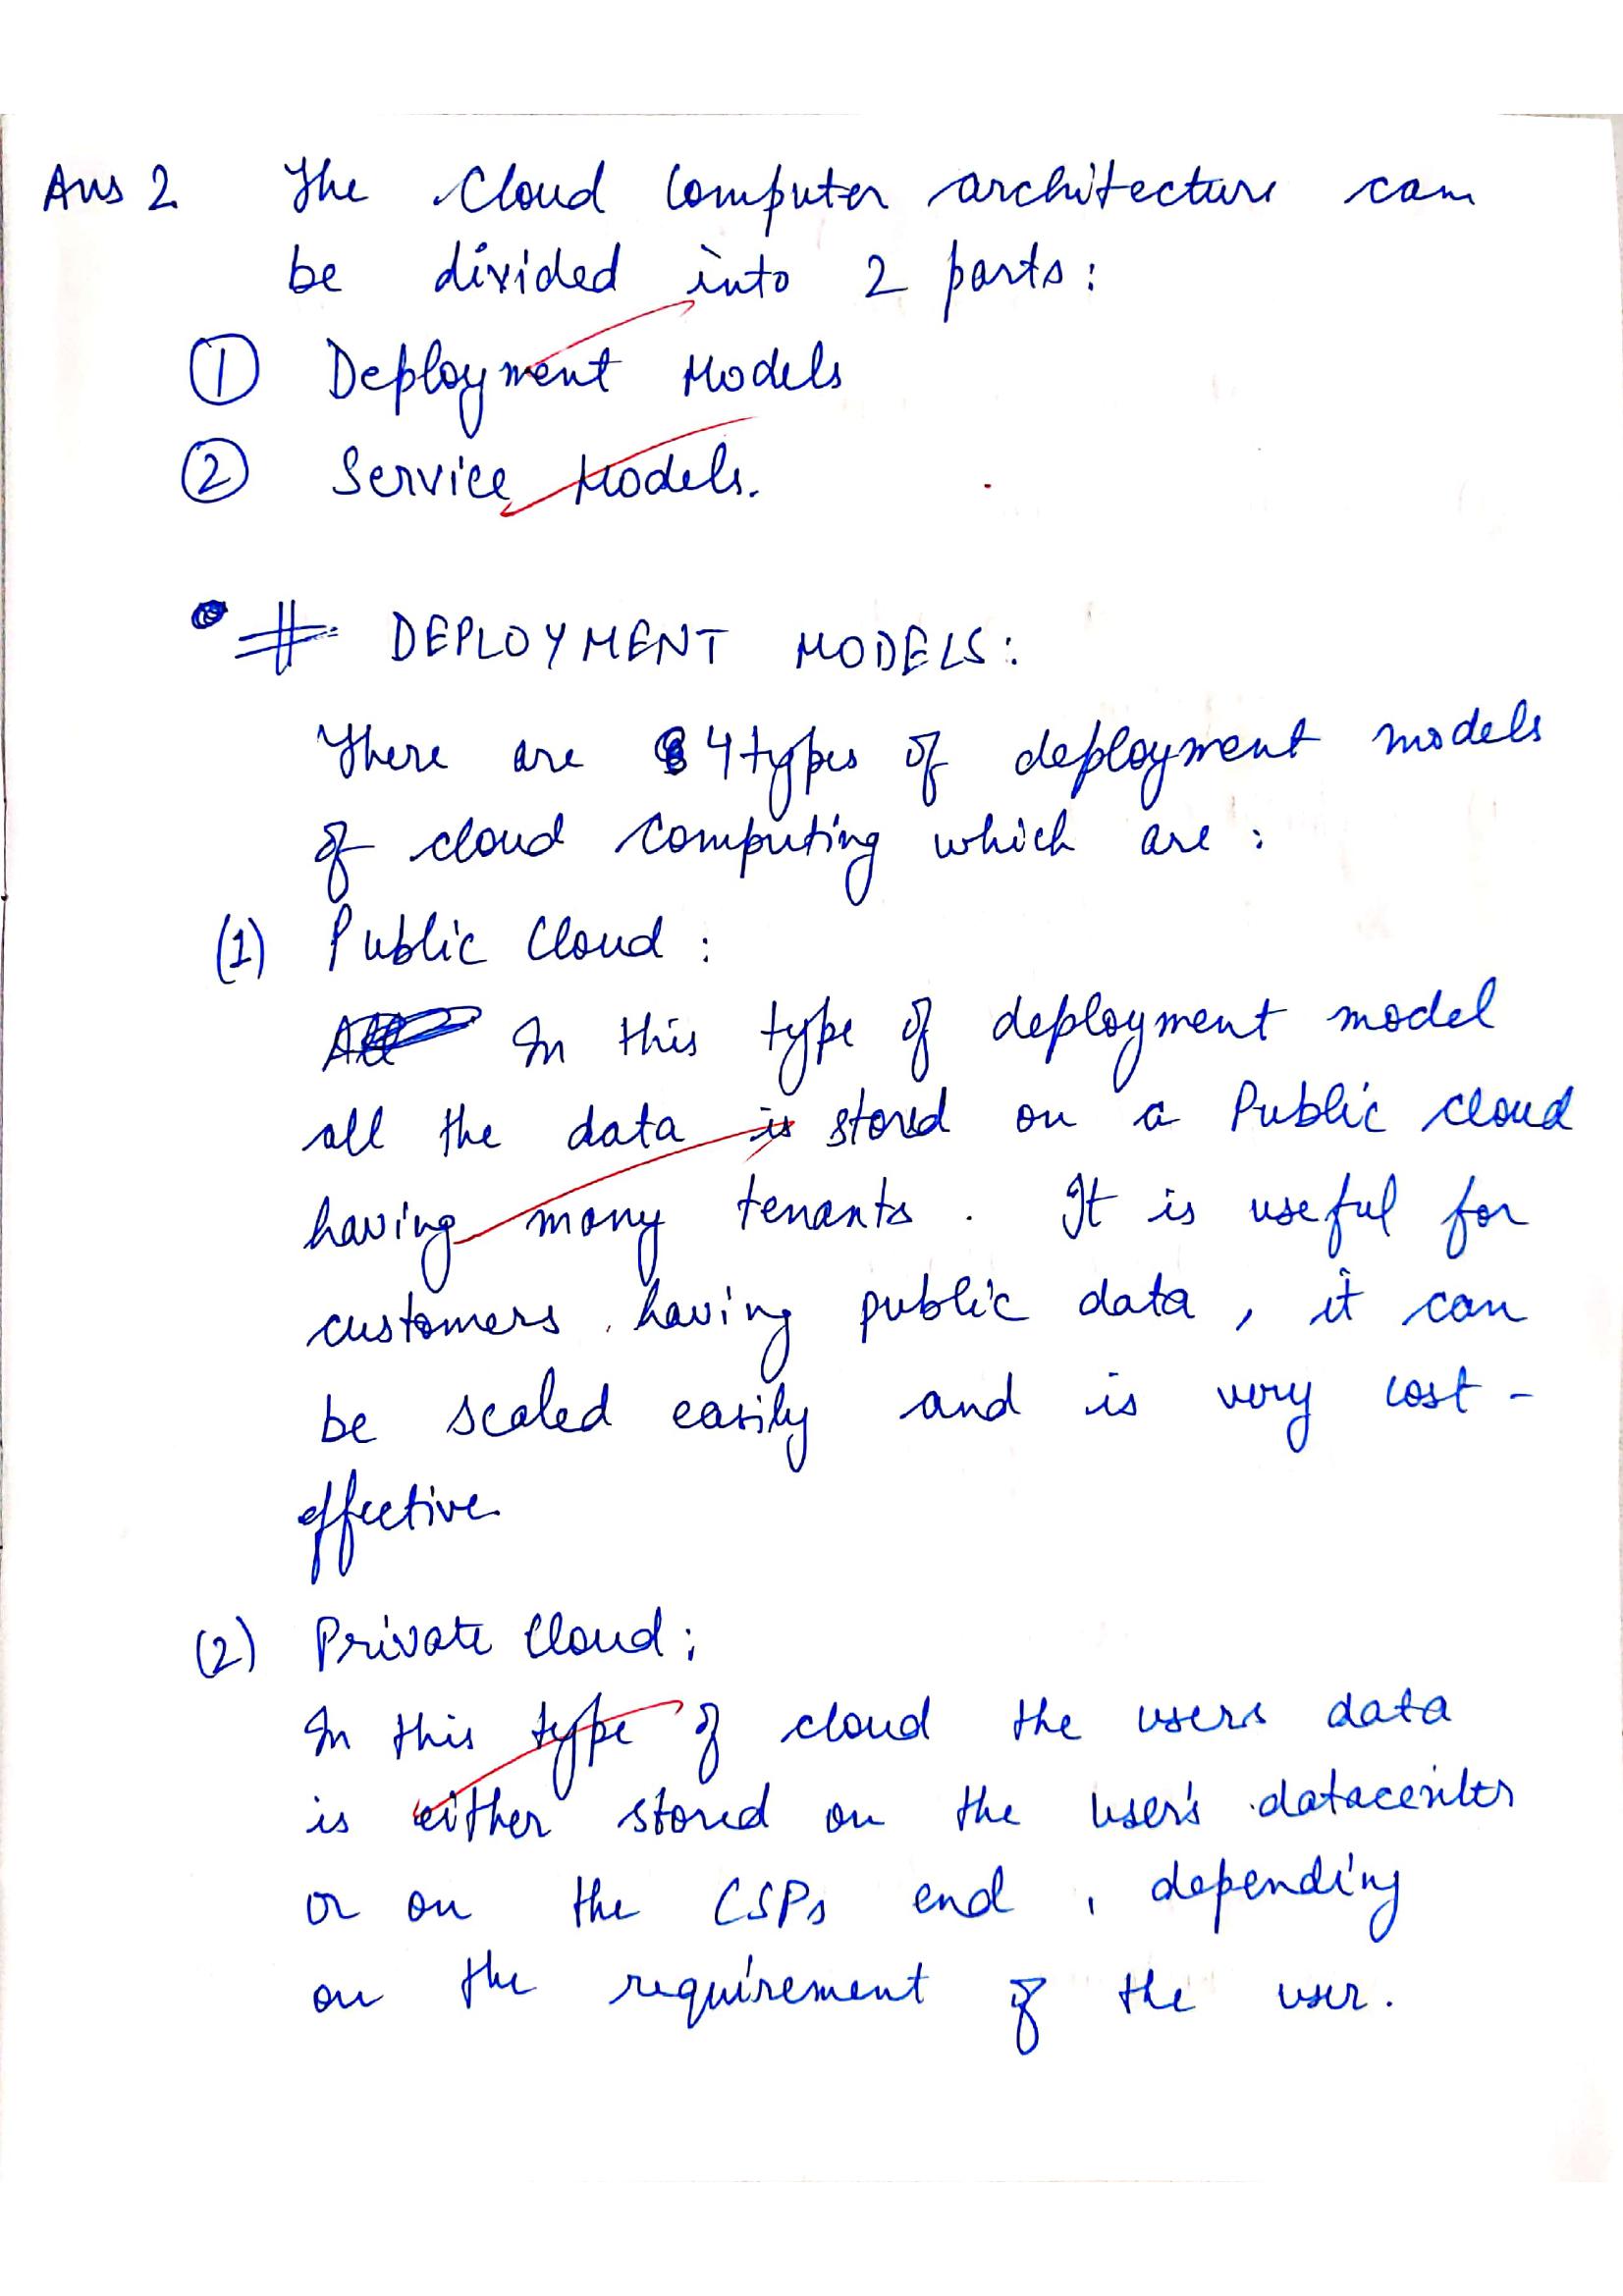 Ans 2 The Cloud Computer architecture can
be divided into 2 parts:
① Deployment Models
② Service Models.
# DEPLOYMENT MODELS:
There are 4 types of deployment models
of cloud computing which are:
(1) Public Cloud:
In this type of deployment model
all the data is stored on a Public cloud
having many tenants. It is useful for
customers having public data, it can
be scaled easily and is very cost-
effective.
(2) Private Cloud:
In this type of cloud the users data
is either stored on the user's datacenter
or on the CSPs end, depending
on the requirement of the user.